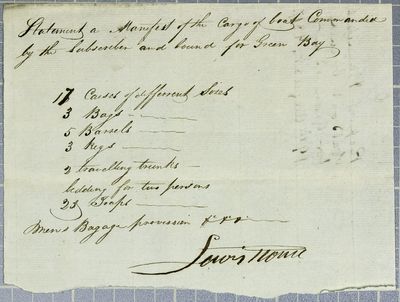 Statement a Manifest of the Cargo of boat Commanded
by the Subscriber and bound for Green Bay
17 Cases of different Sises
3 Bags
5 Barrels
3 Kegs
2 travelling trunks
bedding for two persons
23 Traps
Mens Bagage provission &&&
Lewis